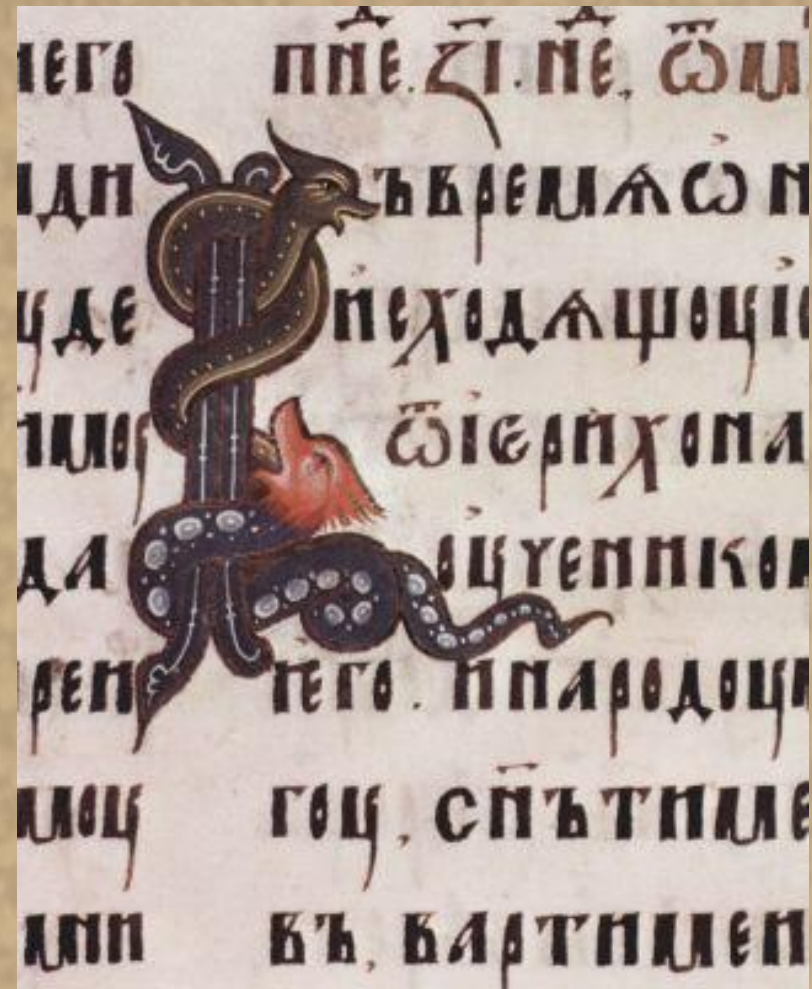 его
ди
уде
имоу
да
рен
моу
мни
пнⷣе. ꙁ҃і. нⷣе. ѿ м
Въ времѧ ѡн
исходѧшоу іс
ѿ іерихона
оученико
него. и народоу
гоу, сн҃ъ тиме
въ, вартимеи